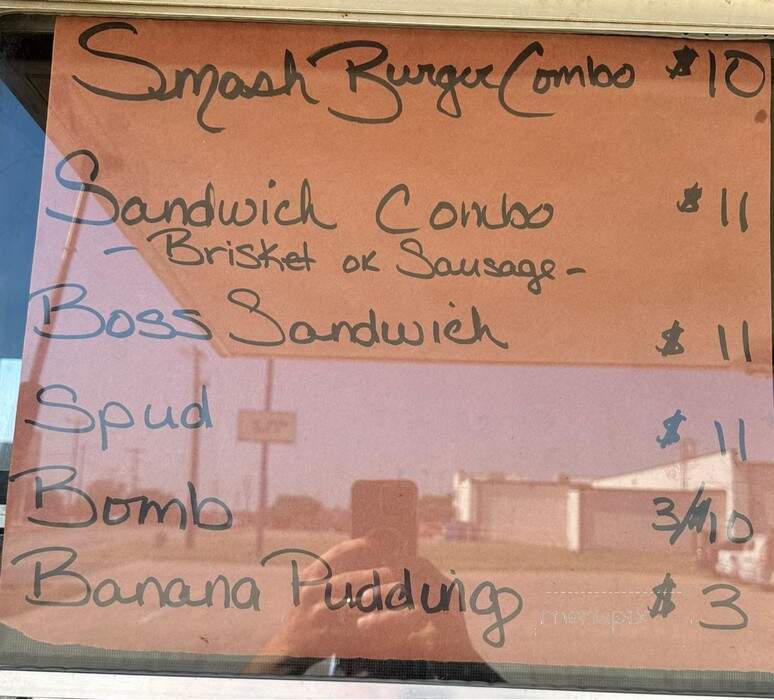 Smash Burger Combo $10
Sandwich Combo $11
- Brisket or Sausage -
Boss Sandwich $11
Spud $11
Bomb 3/$10
Banana Pudding $3
menupix